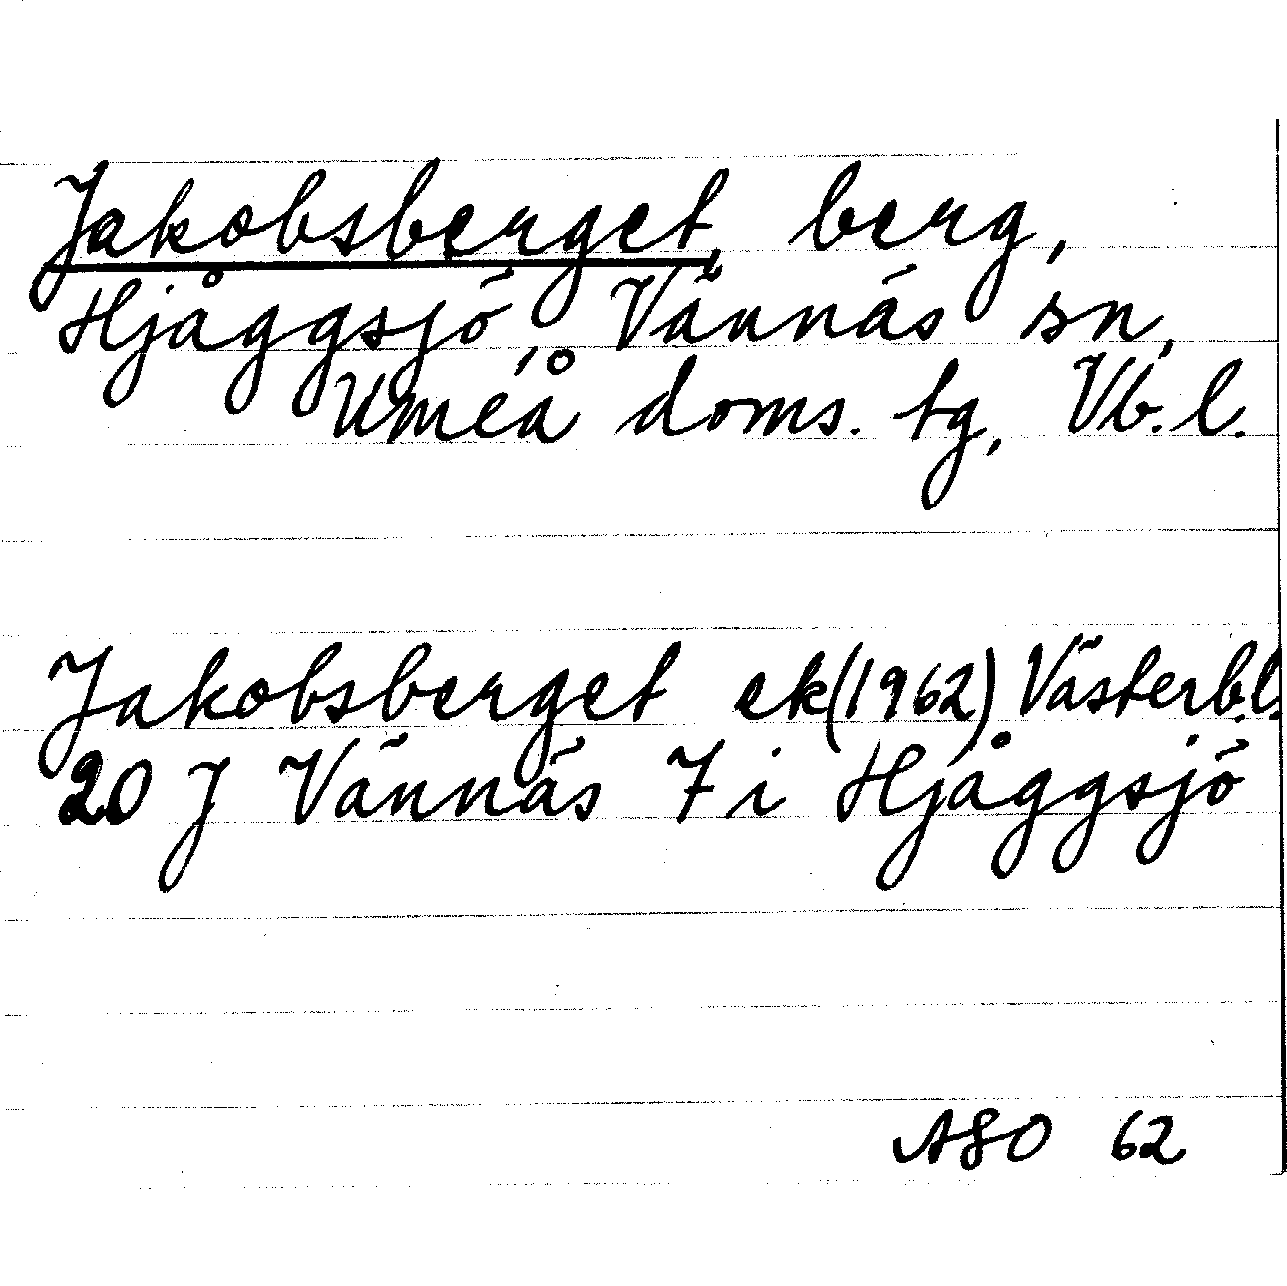 Jakobsberget, berg,
Hjåggsjö, Vännäs sn,
Umeå doms. tg, Vb. l.
Jakobsberget ek(1962) Västerb.l.
20 J Vännäs 7 i Hjåggsjö
ASO 62